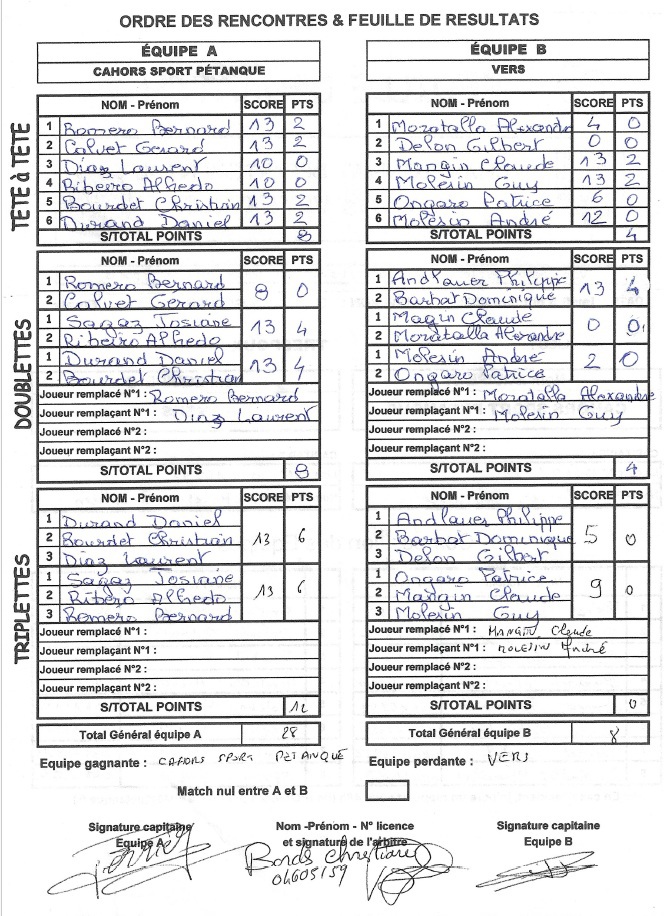 ORDRE DES RENCONTRES & FEUILLE DE RESULTATS
ÉQUIPE A
CAHORS SPORT PÉTANQUE
TÊTE à TÊTE
NOM - Prénom SCORE PTS
1 Romero Bernard 13 2
2 Calvet Gerard 13 2
3 Diaz Laurent 10 0
4 Ribeiro Alfredo 10 0
5 Bourdet Christian 13 2
6 Durand Daniel 13 2
S/TOTAL POINTS 8
DOUBLETTES
1 Romero Bernard 8 0
2 Calvet Gerard
1 Sagaz Josiane 13 4
2 Ribeiro Alfredo
1 Durand Daniel 13 4
2 Bourdet Christian
Joueur remplacé N°1 : Romero Bernard
Joueur remplaçant N°1 : Diaz Laurent
Joueur remplacé N°2 :
Joueur remplaçant N°2 :
S/TOTAL POINTS 8
TRIPLETTES
NOM - Prénom SCORE PTS
1 Durand Daniel
2 Bourdet Christian 13 6
3 Diaz Laurent
1 Sagaz Josiane
2 Ribero Alfredo 13 6
3 Romero Bernard
Joueur remplacé N°1 :
Joueur remplaçant N°1 :
Joueur remplacé N°2 :
Joueur remplaçant N°2 :
S/TOTAL POINTS 12
Total Général équipe A 28
ÉQUIPE B
VERS
NOM - Prénom SCORE PTS
1 Moratalla Alexandre 4 0
2 Delon Gilbert 0 0
3 Mangin Claude 13 2
4 Molesin Guy 13 2
5 Ongaro Patrice 6 0
6 Molesin André 12 0
S/TOTAL POINTS 4
1 Andlauer Philippe 13 4
2 Barbat Dominique
1 Magin Claude 0 0
2 Moratalla Alexandre
1 Molesin André 2 0
2 Ongaro Patrice
Joueur remplacé N°1 : Moratalla Alexandre
Joueur remplaçant N°1 : Molesin Guy
Joueur remplacé N°2 :
Joueur remplaçant N°2 :
S/TOTAL POINTS 4
NOM - Prénom SCORE PTS
1 Andlauer Philippe
2 Barbat Dominique 5 0
3 Delon Gilbert
1 Ongaro Patrice
2 Mangin Claude 9 0
3 Molesin Guy
Joueur remplacé N°1 : MANGIN Claude
Joueur remplaçant N°1 : MOLESIN André
Joueur remplacé N°2 :
Joueur remplaçant N°2 :
S/TOTAL POINTS 0
Total Général équipe B 8
Equipe gagnante : CAHORS SPORT PETANQUE
Equipe perdante : VERS
Match nul entre A et B
Signature capitaine
Equipe A
Nom -Prénom - N° licence
et signature de l'arbitre
Signature capitaine
Equipe B